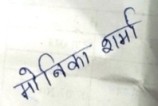 मोनिका शर्मा